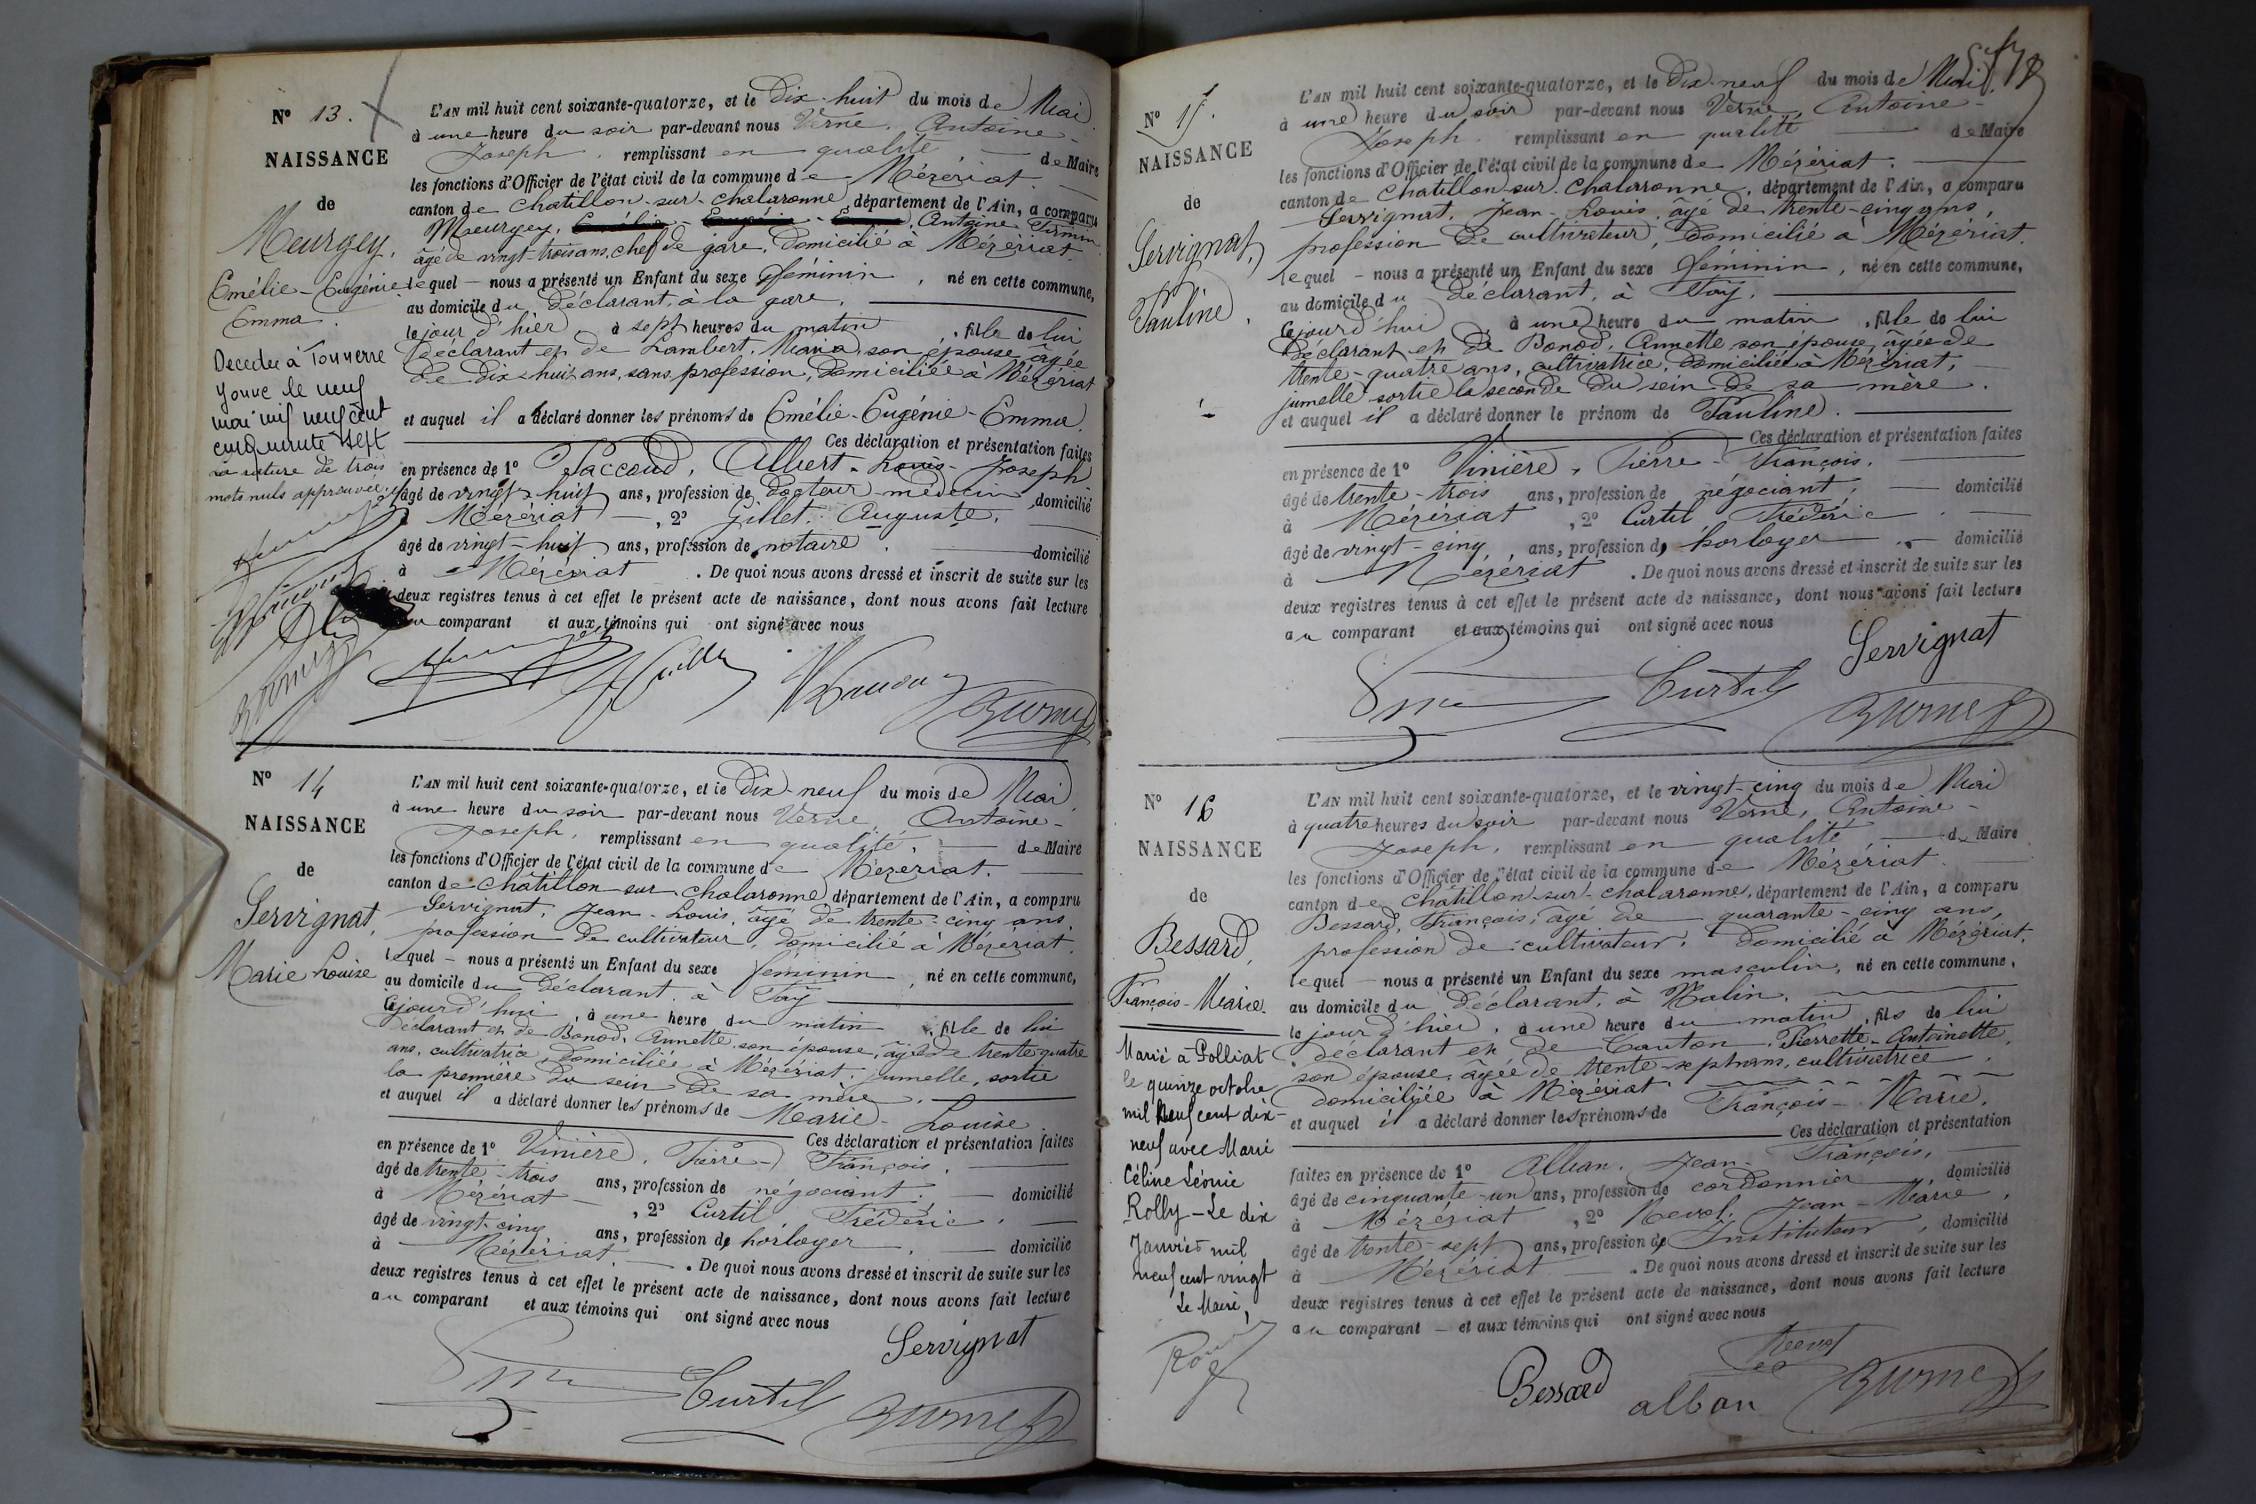 N° 13.
NAISSANCE
de
Meurgey,
Emélie-Eugénie
Emma.
Décédée à Tonnerre
Yonne le neuf
mai mil neuf cent
cinquante sept
La rature de trois
mots nuls approuvée.
L'AN mil huit cent soixante-quatorze, et le Dix-huit du mois de Mai,
à une heure du soir par-devant nous Verne, Antoine-
Joseph, remplissant en qualité de Maire
les fonctions d'Officier de l'état civil de la commune de Mézériat.
canton de Chatillon-sur-chalaronne, département de l'Ain, a comparu
Meurgey, Antoine Firmin
âgé de vingt-trois ans, chef de gare, domicilié à Mézériat.
lequel - nous a présenté un Enfant du sexe féminin, né en cette commune,
au domicile du déclarant, à la gare,
le jour d'hier, à sept heures du matin, fille de lui
déclarant et de Lambert, Maria, son épouse, âgée
de dix-huit ans, sans profession, domiciliée à Mézériat
et auquel il a déclaré donner les prénoms de Emélie-Eugénie-Emma.
Ces déclaration et présentation faites
en présence de 1° Paccoud, Albert-Louis-Joseph
âgé de vingt-huit ans, profession de docteur-médecin domicilié
Mézériat, 2° Gillet, Auguste,
âgé de vingt-huit ans, profession de notaire. domicilié
à Mézériat. De quoi nous avons dressé et inscrit de suite sur les
deux registres tenus à cet effet le présent acte de naissance, dont nous avons fait lecture
au comparant et aux témoins qui ont signé avec nous
N° 14
NAISSANCE
de
Servignat,
Marie Louise
L'AN mil huit cent soixante-quatorze, et le Dix-neuf du mois de Mai,
à une heure du soir par-devant nous Verne, Antoine-
Joseph, remplissant en qualité, de Maire
les fonctions d'Officier de l'état civil de la commune de Mézériat.
canton de Châtillon sur chalaronne, département de l'Ain, a comparu
Servignat, Jean-Louis, âgé de trente-cinq ans,
profession de cultivateur, domicilié à Mézériat,
lequel - nous a présenté un Enfant du sexe féminin, né en cette commune,
au domicile du déclarant, à Fay
cejourd'hui, à une heure du matin, fille de lui
déclarant et de Bonod, Annette, son épouse, âgée de trente-quatre
ans, cultivatrice, domiciliée à Mézériat; jumelle, sortie
la première du sein de sa mère.
et auquel il a déclaré donner les prénoms de Marie-Louise
Ces déclaration et présentation faites
en présence de 1° Vinière, Pierre-François,
âgé de trente-trois ans, profession de négociant; domicilié
à Mézériat, 2° Curtil Frédéric,
âgé de vingt-cinq ans, profession de horloger, domicilié
à Mézériat. De quoi nous avons dressé et inscrit de suite sur les
deux registres tenus à cet effet le présent acte de naissance, dont nous avons fait lecture
au comparant et aux témoins qui ont signé avec nous
Servignat
Curtil
N° 15.
NAISSANCE
de
Servignat,
Pauline.
L'AN mil huit cent soixante-quatorze, et le Dix-neuf du mois de Mai,
à une heure du soir par-devant nous Verne, Antoine-
Joseph, remplissant en qualité de Maire
les fonctions d'Officier de l'état civil de la commune de Mézériat.
canton de Chatillon sur Chalaronne, département de l'Ain, a comparu
Servignat, Jean-Louis, âgé de trente-cinq ans,
profession de cultivateur, domicilié à Mézériat.
lequel - nous a présenté un Enfant du sexe féminin, né en cette commune,
au domicile du déclarant, à Fay,
cejourd'hui, à une heure du matin, fille de lui
déclarant et de Bonod, Annette son épouse, âgée de
trente-quatre ans, cultivatrice, domiciliée à Mézériat,
jumelle sortie la seconde du sein de sa mère.
et auquel il a déclaré donner le prénom de Pauline.
Ces déclaration et présentation faites
en présence de 1° Vinière, Pierre-François.
âgé de trente-trois ans, profession de négociant; domicilié
à Mézériat, 2° Curtil Frédéric.
âgé de vingt-cinq, ans, profession de horloger domicilié
à Mézériat. De quoi nous avons dressé et inscrit de suite sur les
deux registres tenus à cet effet le présent acte de naissance, dont nous avons fait lecture
au comparant et aux témoins qui ont signé avec nous
Servignat
Curtil
N° 16
NAISSANCE
de
Bessard,
François-Marie.
Marié à Polliat
le quinze octobre
mil neuf cent dix-
neuf avec Marie
Céline Léonie
Rolly - Le dix
Janvier mil
neuf cent vingt
Le Maire,
L'AN mil huit cent soixante-quatorze, et le vingt-cinq du mois de Mai
à quatre heures du soir par-devant nous Verne, Antoine-
Joseph, remplissant en qualité de Maire
les fonctions d'Officier de l'état civil de la commune de Mézériat.
canton de Chatillon-sur-chalaronne, département de l'Ain, a comparu
Bessard, François, âgé de quarante-cinq ans,
profession de cultivateur, domicilié à Mézériat,
lequel - nous a présenté un Enfant du sexe masculin, né en cette commune,
au domicile du déclarant, à Malin,
le jour d'hier, à une heure du matin, fils de lui
déclarant et de Canton, Pierrette-Antoinette,
son épouse, âgée de trente-sept ans, cultivatrice,
domiciliée à Mézériat
et auquel il a déclaré donner les prénoms de François-Marie.
Ces déclaration et présentation
faites en présence de 1° Alban, Jean-François,
âgé de cinquante-un ans, profession de cordonnier, domicilié
à Mézériat, 2° Nevol, Jean-Marie,
âgé de trente-sept ans, profession de Instituteur, domicilié
à Mézériat. De quoi nous avons dressé et inscrit de suite sur les
deux registres tenus à cet effet le présent acte de naissance, dont nous avons fait lecture
au comparant - et aux témoins qui ont signé avec nous
Bessard
alban